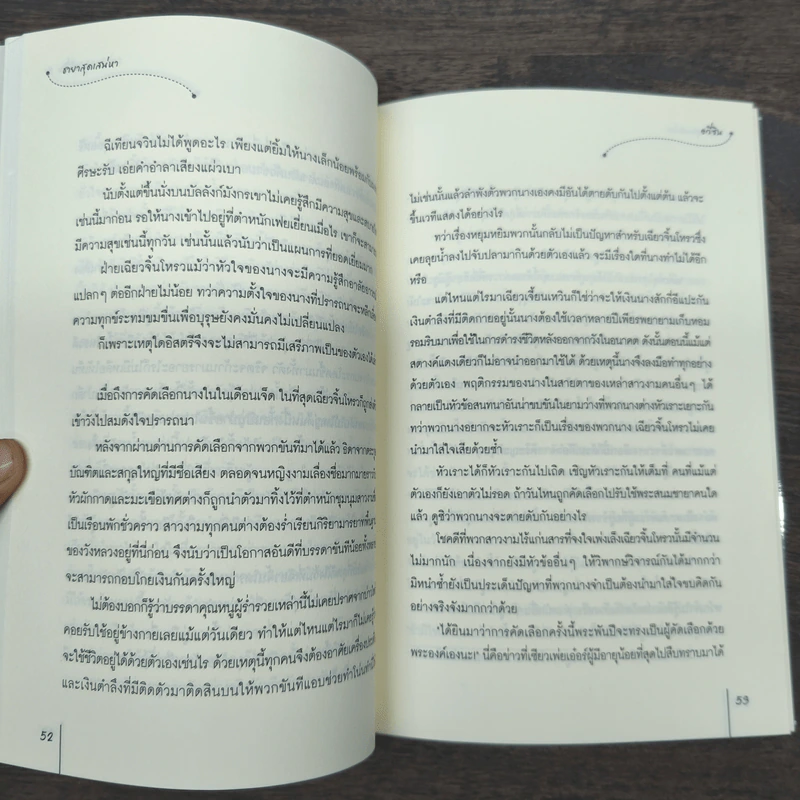 ชายาสุดเสน่หา
ฉีเทียนจวินไม่ได้พูดอะไร เพียงแต่ยิ้มให้นางเล็กน้อยพร้อมกับ
ศีรษะรับ เอ่ยคำอำลาเสียงแผ่วเบา
นับตั้งแต่ขึ้นนั่งบนบัลลังก์มังกรเขาไม่เคยรู้สึกมีความสุขและ
เช่นนี้มาก่อน รอให้นางเข้าไปอยู่ที่ตำหนักเฟยเยี่ยนเมื่อไร เขาก็จะ
มีความสุขเช่นนี้ทุกวัน เช่นนั้นแล้วนับว่าเป็นแผนการที่ยอดเยี่ยมมาก
ฝ่ายเฉียวจิ้นโหรวแม้ว่าหัวใจของนางจะมีความรู้สึกอาลัย
แปลกๆ ต่ออีกฝ่ายไม่น้อย ทว่าความตั้งใจของนางที่ปรารถนาจะ
ความทุกข์ระทมขมขื่นเพื่อบุรุษยังคงมั่นคงไม่เปลี่ยนแปลง
ก็เพราะเหตุใดอิสตรีจึงจะไม่สามารถมีเสรีภาพเป็นของตัวเองได้
เมื่อถึงการคัดเลือกนางในในเดือนเจ็ด ในที่สุดเฉียวจิ้นโหรวก็ถูก
เข้าวังไปสมดังใจปรารถนา
หลังจากผ่านด่านการคัดเลือกจากพวกขันทีมาได้แล้ว ธิดาจาก
บัณฑิตและสกุลใหญ่ที่มีชื่อเสียง ตลอดจนหญิงงามเลื่องชื่อมากมาย
หัวผักกาดและมะเขือเทศต่างก็ถูกนำตัวมาทิ้งไว้ที่ตำหนักชุมนุมสาวงาม
เป็นเรือนพักชั่วคราว สาวงามทุกคนต่างต้องร่ำเรียนกิริยามารยาทพื้นฐาน
ของวังหลวงอยู่ที่นี่ก่อน จึงนับว่าเป็นโอกาสอันดีที่บรรดาขันทีน้อย
จะสามารถกอบโกยเงินกันครั้งใหญ่
ไม่ต้องบอกก็รู้ว่าบรรดาคุณหนูผู้ร่ำรวยเหล่านี้ไม่เคยปราศจากบ่าว
คอยรับใช้อยู่ข้างกายเลยแม้แต่วันเดียว ทำให้แต่ไหนแต่ไรมาก็ไม่เคยรู้
จะใช้ชีวิตอยู่ได้ด้วยตัวเองเช่นไร ด้วยเหตุนี้ทุกคนจึงต้องอาศัยเครื่อง
และเงินตำลึงที่มีติดตัวมาติดสินบนให้พวกขันทีแอบช่วยทำ
52
ชวีซิน
ไม่เช่นนั้นแล้วลำพังตัวพวกนางเองคงมีอันได้ตายดับกันไปตั้งแต่ต้น แล้วจะ
ขึ้นเวทีแสดงได้อย่างไร
ทว่าเรื่องหยุมหยิมพวกนั้นกลับไม่เป็นปัญหาสำหรับเฉียวจิ้นโหรวซึ่ง
เคยลุยน้ำลงไปจับปลามากินด้วยตัวเองแล้ว จะมีเรื่องใดที่นางทำไม่ได้อีก
หรือ
แต่ไหนแต่ไรมาเฉียวเจี้ยนเหวินก็ใช่ว่าจะให้เงินนางสักกี่อีแปะกัน
เงินตำลึงที่มีติดกายอยู่นั้นนางต้องใช้เวลาหลายปีเพียรพยายามเก็บหอม
รอมริบมาเพื่อใช้ในการดำรงชีวิตหลังออกจากวังในอนาคต ดังนั้นตอนนี้แม้แต่
สตางค์แดงเดียวก็ไม่อาจนำออกมาใช้ได้ ด้วยเหตุนี้นางจึงลงมือทำทุกอย่าง
ด้วยตัวเอง พฤติกรรมของนางในสายตาของเหล่าสาวงามคนอื่นๆ ได้
กลายเป็นหัวข้อสนทนาอันน่าขบขันในยามว่างที่พวกนางต่างหัวเราะเยาะกัน
ทว่าพวกนางอยากจะหัวเราะก็เป็นเรื่องของพวกนาง เฉียวจิ้นโหรวไม่เคย
นำมาใส่ใจเสียด้วยซ้ำ
หัวเราะได้ก็หัวเราะกันไปเถิด เชิญหัวเราะกันให้เต็มที่ คนที่แม้แต่
ตัวเองก็ยังเอาตัวไม่รอด ถ้าวันไหนถูกคัดเลือกไปรับใช้พระสนมชายาคนใด
แล้ว ดูซิว่าพวกนางจะตายดับกันอย่างไร
โชคดีที่พวกสาวงามไร้แก่นสารที่จงใจเพ่งเล็งเฉียวจิ้นโหรวนั้นมีจำนวน
ไม่มากนัก เนื่องจากยังมีหัวข้ออื่นๆ ให้วิพากษ์วิจารณ์กันได้มากกว่า
มิหนำซ้ำยังเป็นประเด็นปัญหาที่พวกนางจำเป็นต้องนำมาใส่ใจขบคิดกัน
อย่างจริงจังมากกว่าด้วย
"ได้ยินมาว่าการคัดเลือกครั้งนี้พระพันปีจะทรงเป็นผู้คัดเลือกด้วย
พระองค์เองนะ!" นี่คือข่าวที่เซียวเฟยเอ๋อร์ผู้มีอายุน้อยที่สุดไปสืบทราบมาได้
53